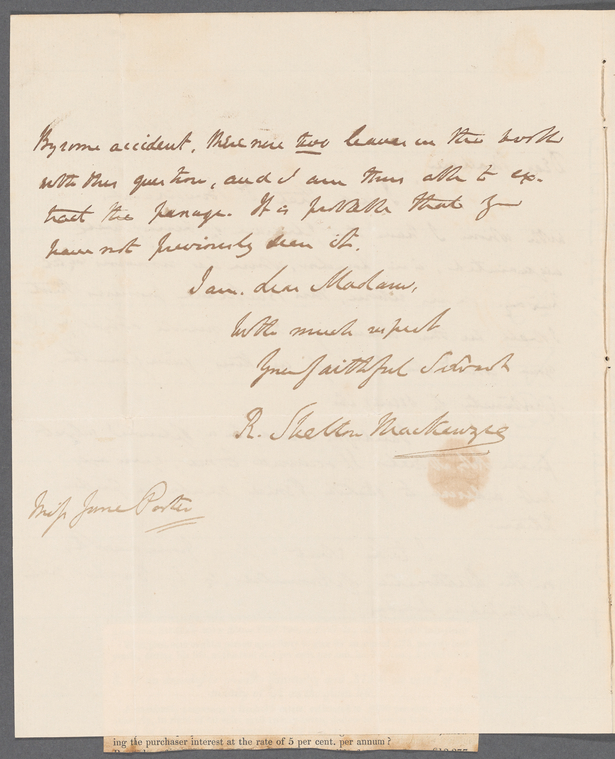 By some accident, there were two leaves in the book
with this question, and I am thus able to ex-
tract the passage. It is probable that you
have not previously seen it.
I am, dear Madam,
With much respect
Your faithful Servant
R. Shelton Mackenzie
Miss Jane Porter
ing the purchaser interest at the rate of 5 per cent. per annum?